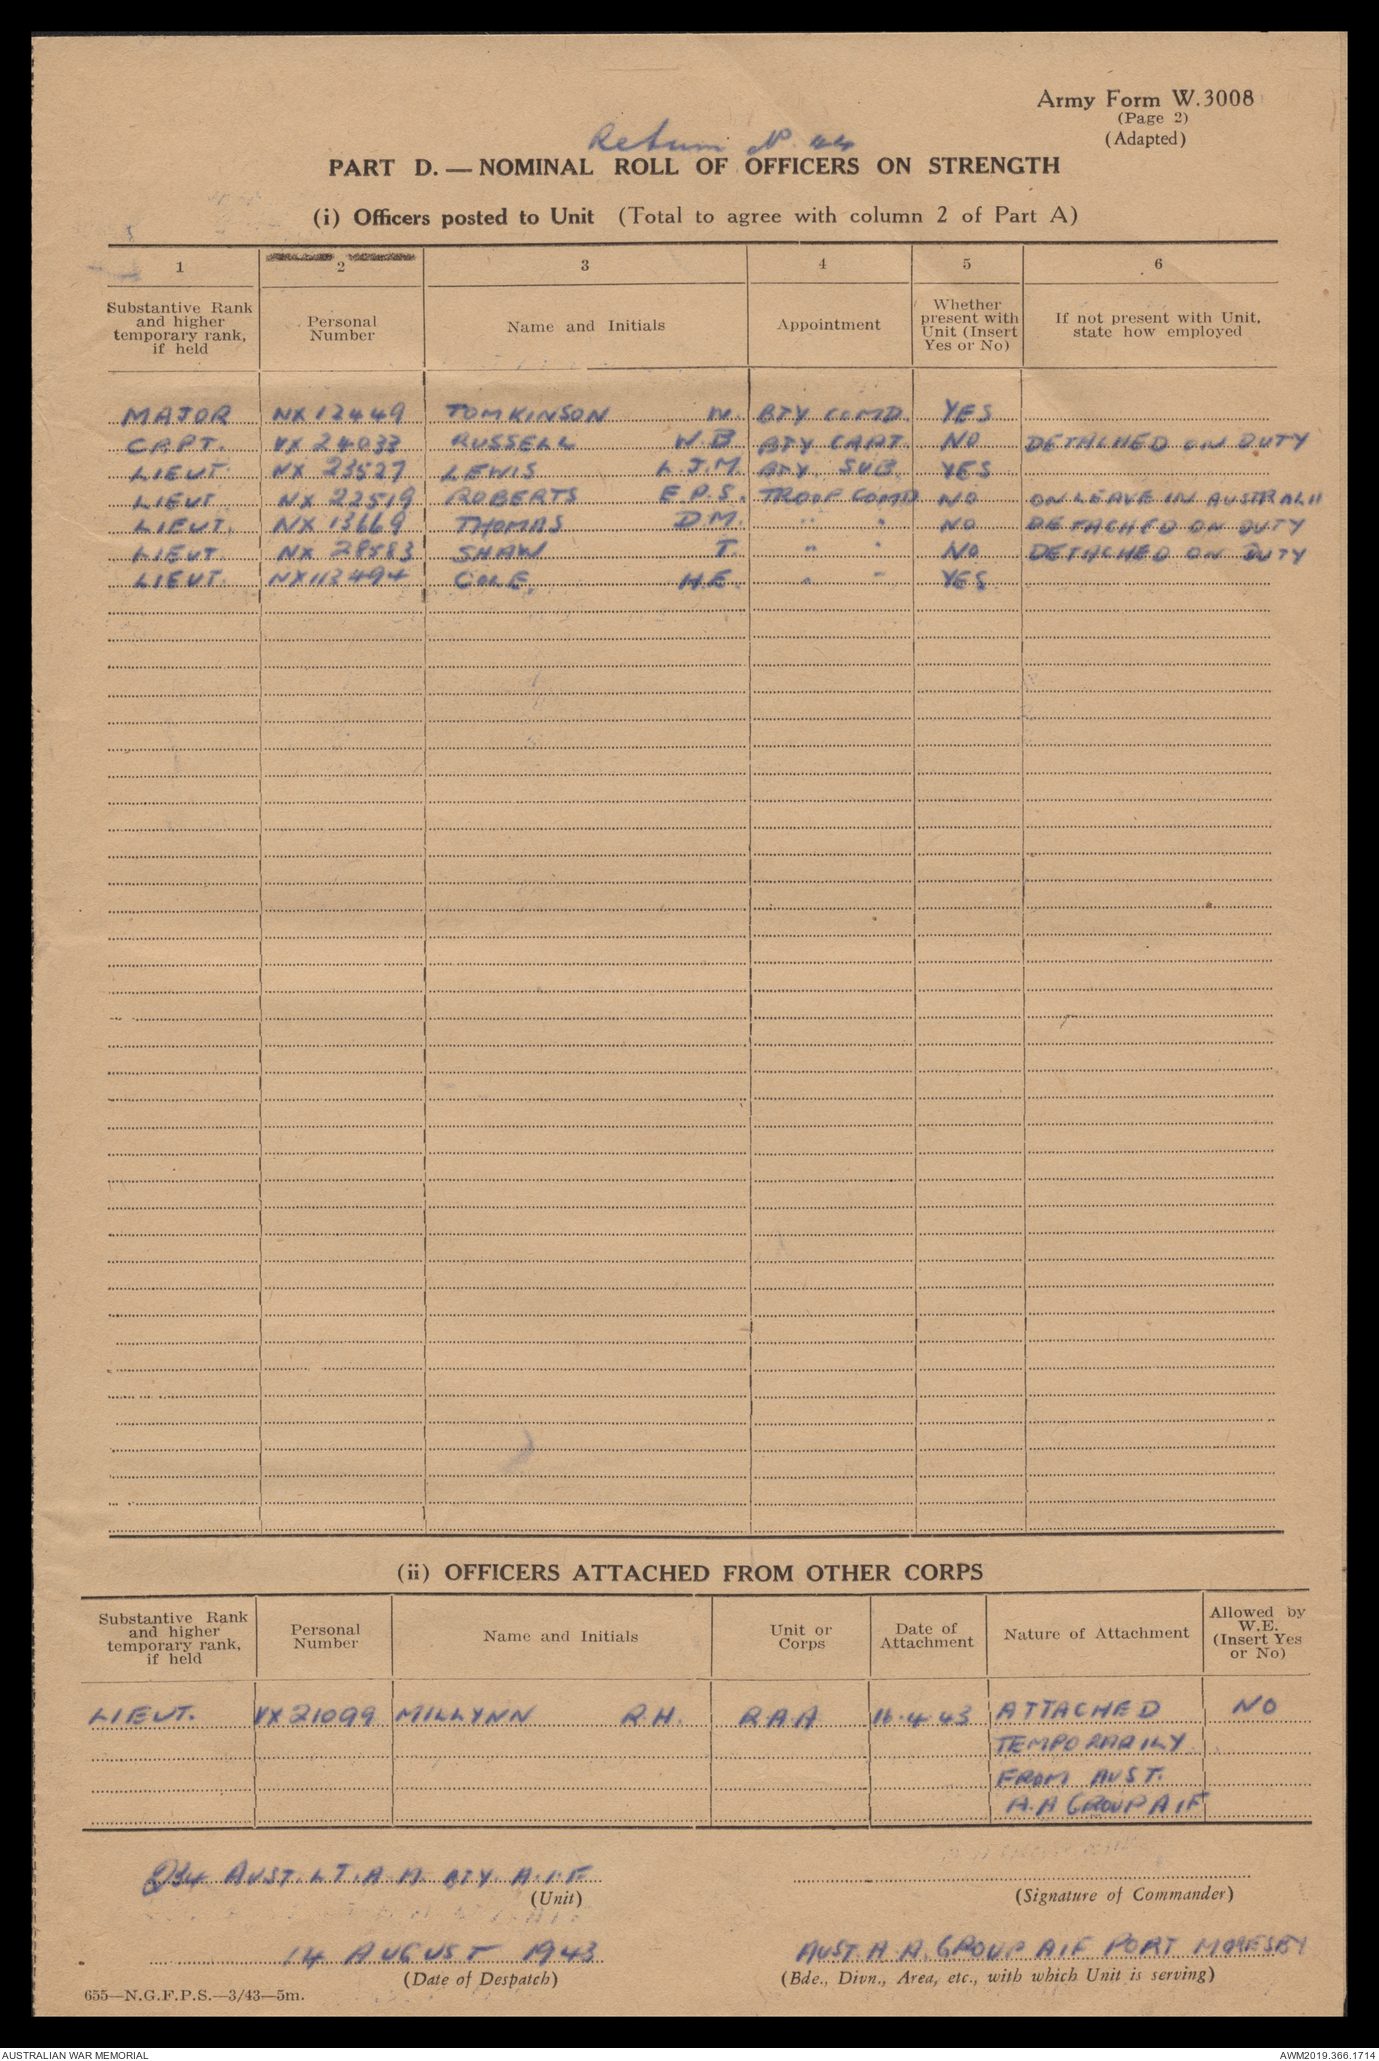 Army Form W.3008
(Page 2)
(Adapted)
Return No. 44
PART D. — NOMINAL ROLL OF OFFICERS ON STRENGTH
(i) Officers posted to Unit (Total to agree with column 2 of Part A)
1 2 3 4 5 6
Substantive Rank and higher temporary rank, if held | Personal Number | Name and Initials | Appointment | Whether present with Unit (Insert Yes or No) | If not present with Unit, state how employed
MAJOR NX12449 TOMKINSON W. BTY COMD. YES
CAPT. VX 24033 RUSSELL W.B BTY CAPT. NO DETACHED ON DUTY
LIEUT. NX 23527 LEWIS L.J.M. BTY. SUB. YES
LIEUT NX 22519 ROBERTS E.P.S. TROOP COMD NO ON LEAVE IN AUSTRALIA
LIEUT. NX 13669 THOMAS D.M. " " NO DETACHED ON DUTY
LIEUT NX 28583 SHAW T. " " NO DETACHED ON DUTY
LIEUT. NX113494 COLE, H.E. " " YES
(ii) OFFICERS ATTACHED FROM OTHER CORPS
Substantive Rank and higher temporary rank, if held | Personal Number | Name and Initials | Unit or Corps | Date of Attachment | Nature of Attachment | Allowed by W.E. (Insert Yes or No)
LIEUT. VX21099 MILLYNN R.H. R.A.A 16.4.43 ATTACHED NO
TEMPORARILY
FROM AUST.
A.A GROUP AIF
234 AUST. LT. A.A. BTY. A.I.F
(Unit)
(Signature of Commander)
14 AUGUST 1943
(Date of Despatch)
AUST. A.A. GROUP AIF PORT MORESBY
(Bde., Divn., Area, etc., with which Unit is serving)
655—N.G.F.P.S.—3/43—5m.
AUSTRALIAN WAR MEMORIAL
AWM2019.366.1714